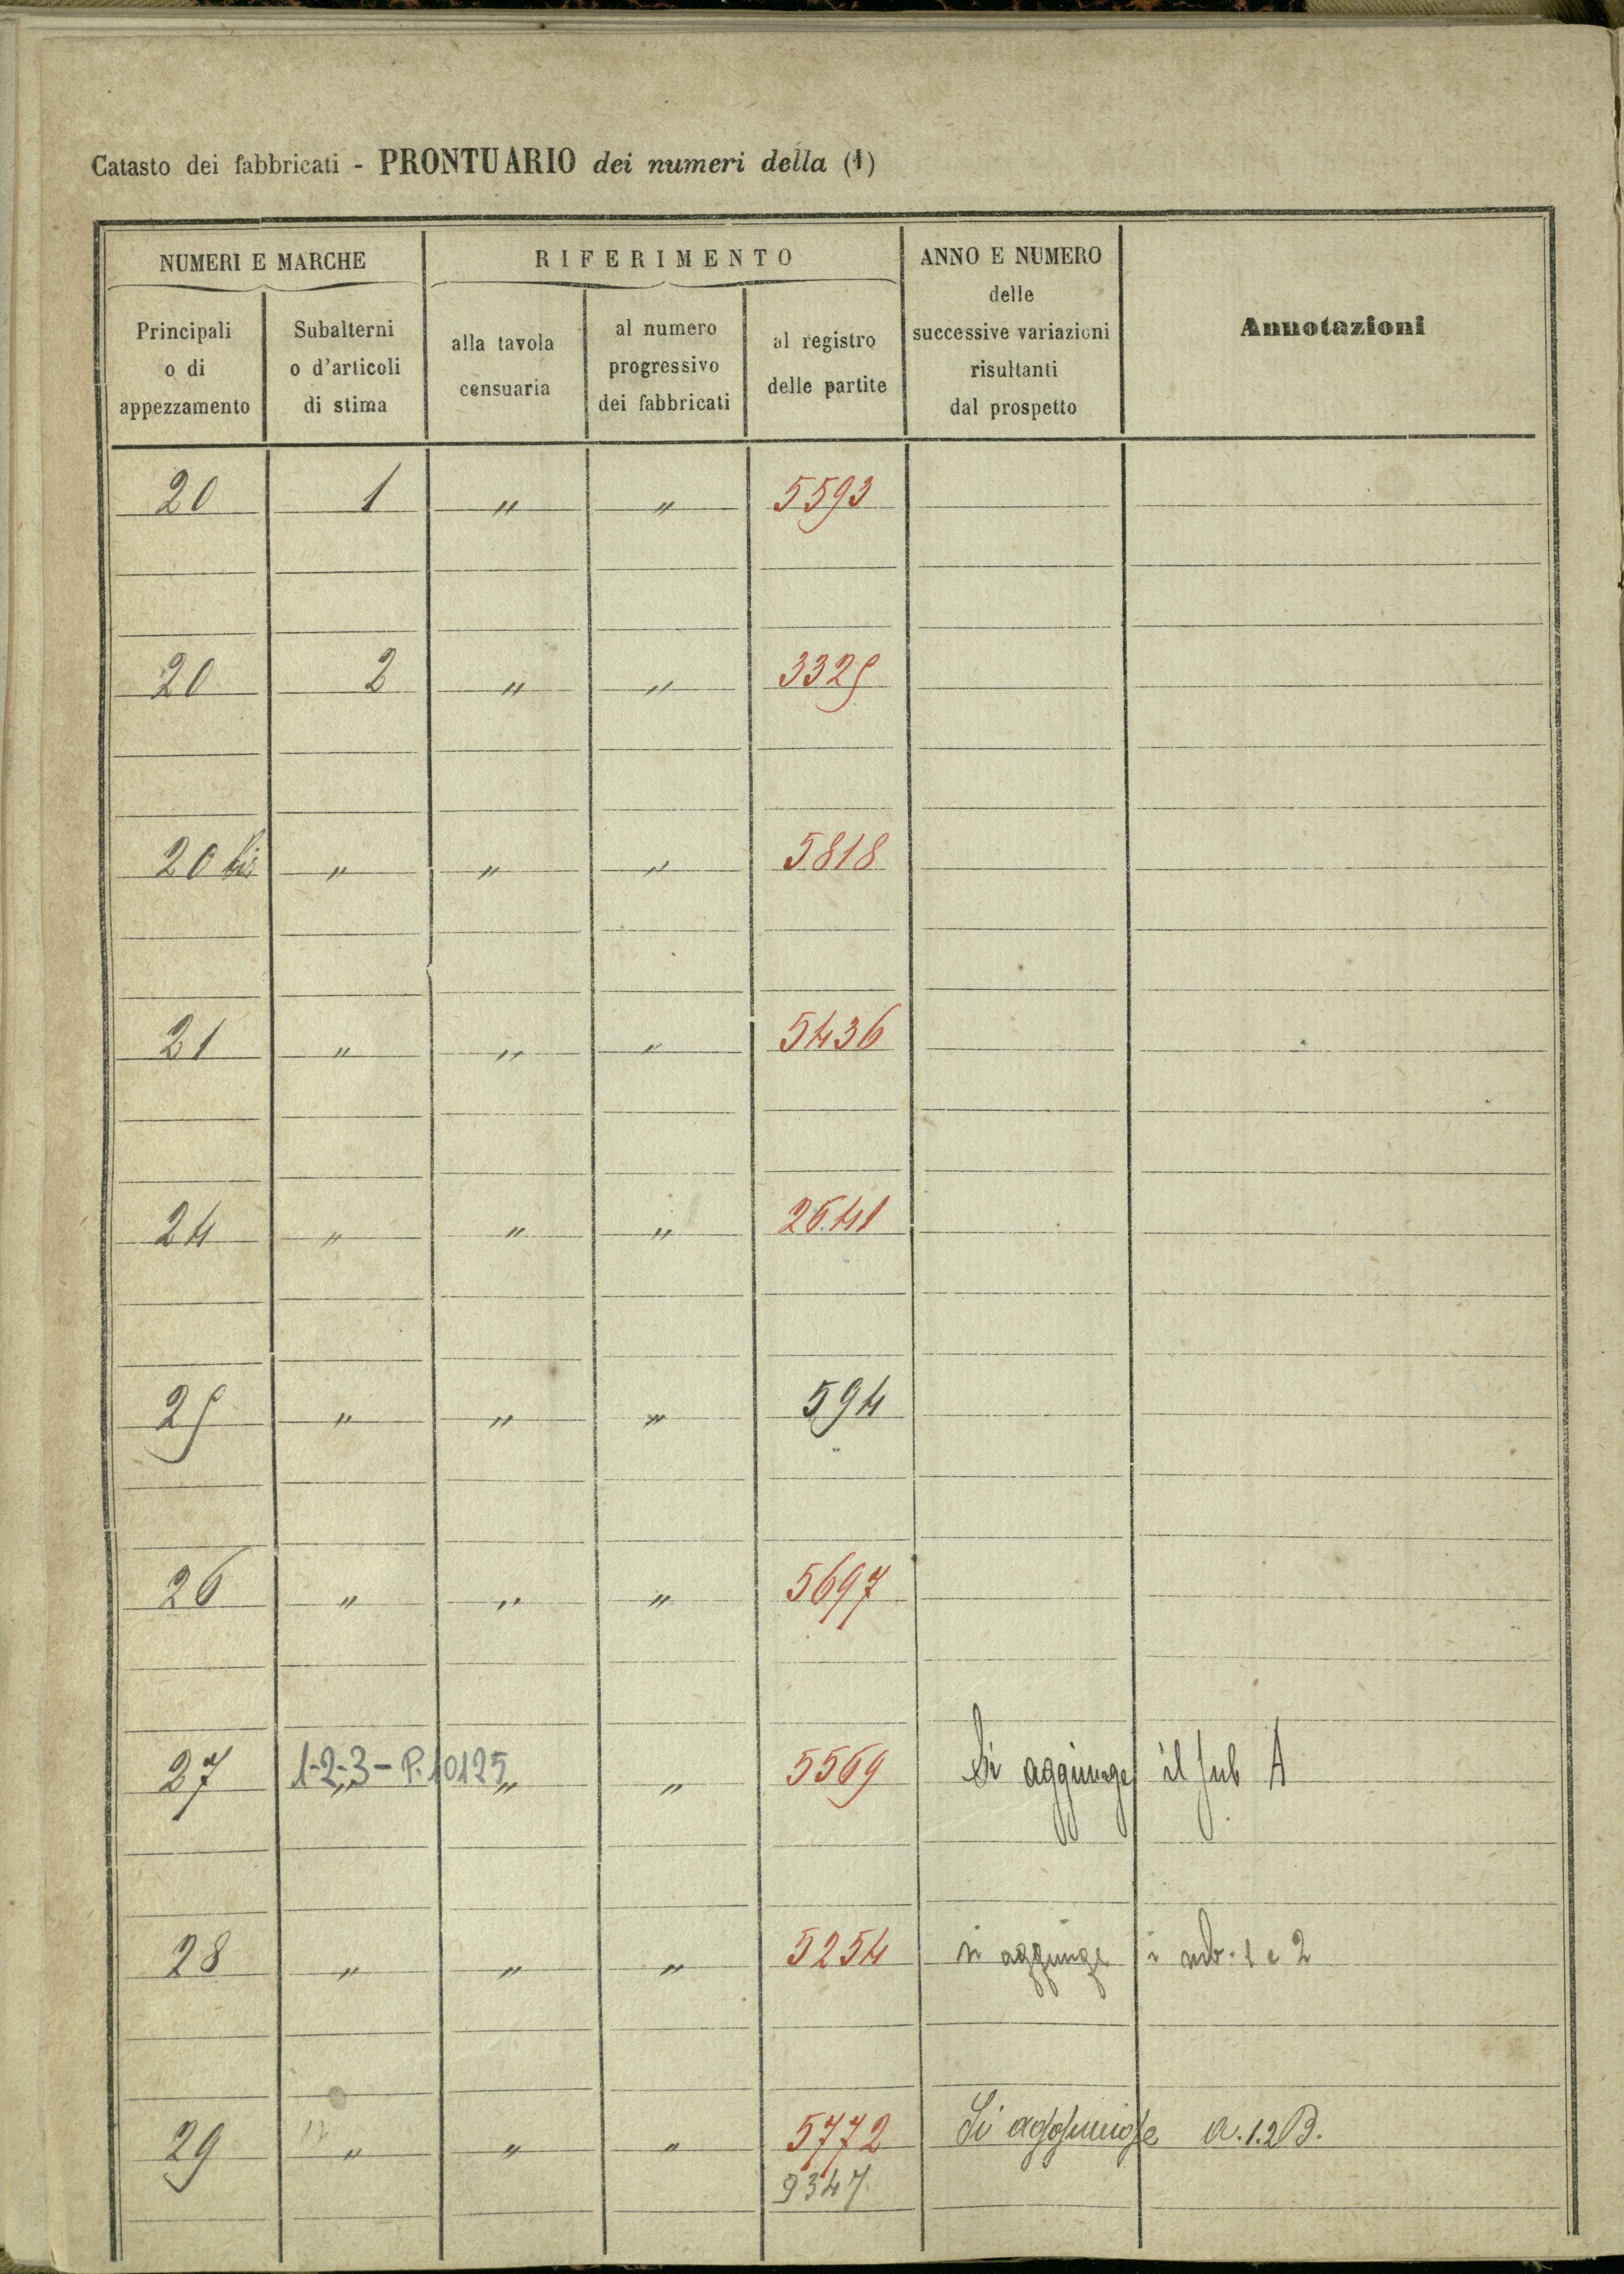 Catasto dei fabbricati - PRONTUARIO dei numeri della (1)
NUMERI E MARCHE RIFERIMENTO ANNO E NUMERO delle successive variazioni risultanti dal prospetto Annotazioni
Principali o di appezzamento Subalterni o d'articoli di stima alla tavola censuaria al numero progressivo dei fabbricati al registro delle partite
20 1 " " 5593
20 2 " " 3325
20 bis " " " 5818
21 " " " 5436
24 " " " 2641
25 " " " 594
26 " " " 5697
27 1-2-3 - P. 10125 " " " 5569 Si aggiunge il sub A
28 " " " 5254 si aggiunge i sub. 1 e 2
29 " " " 5772 Si aggiunge a.1.2 B.
9347